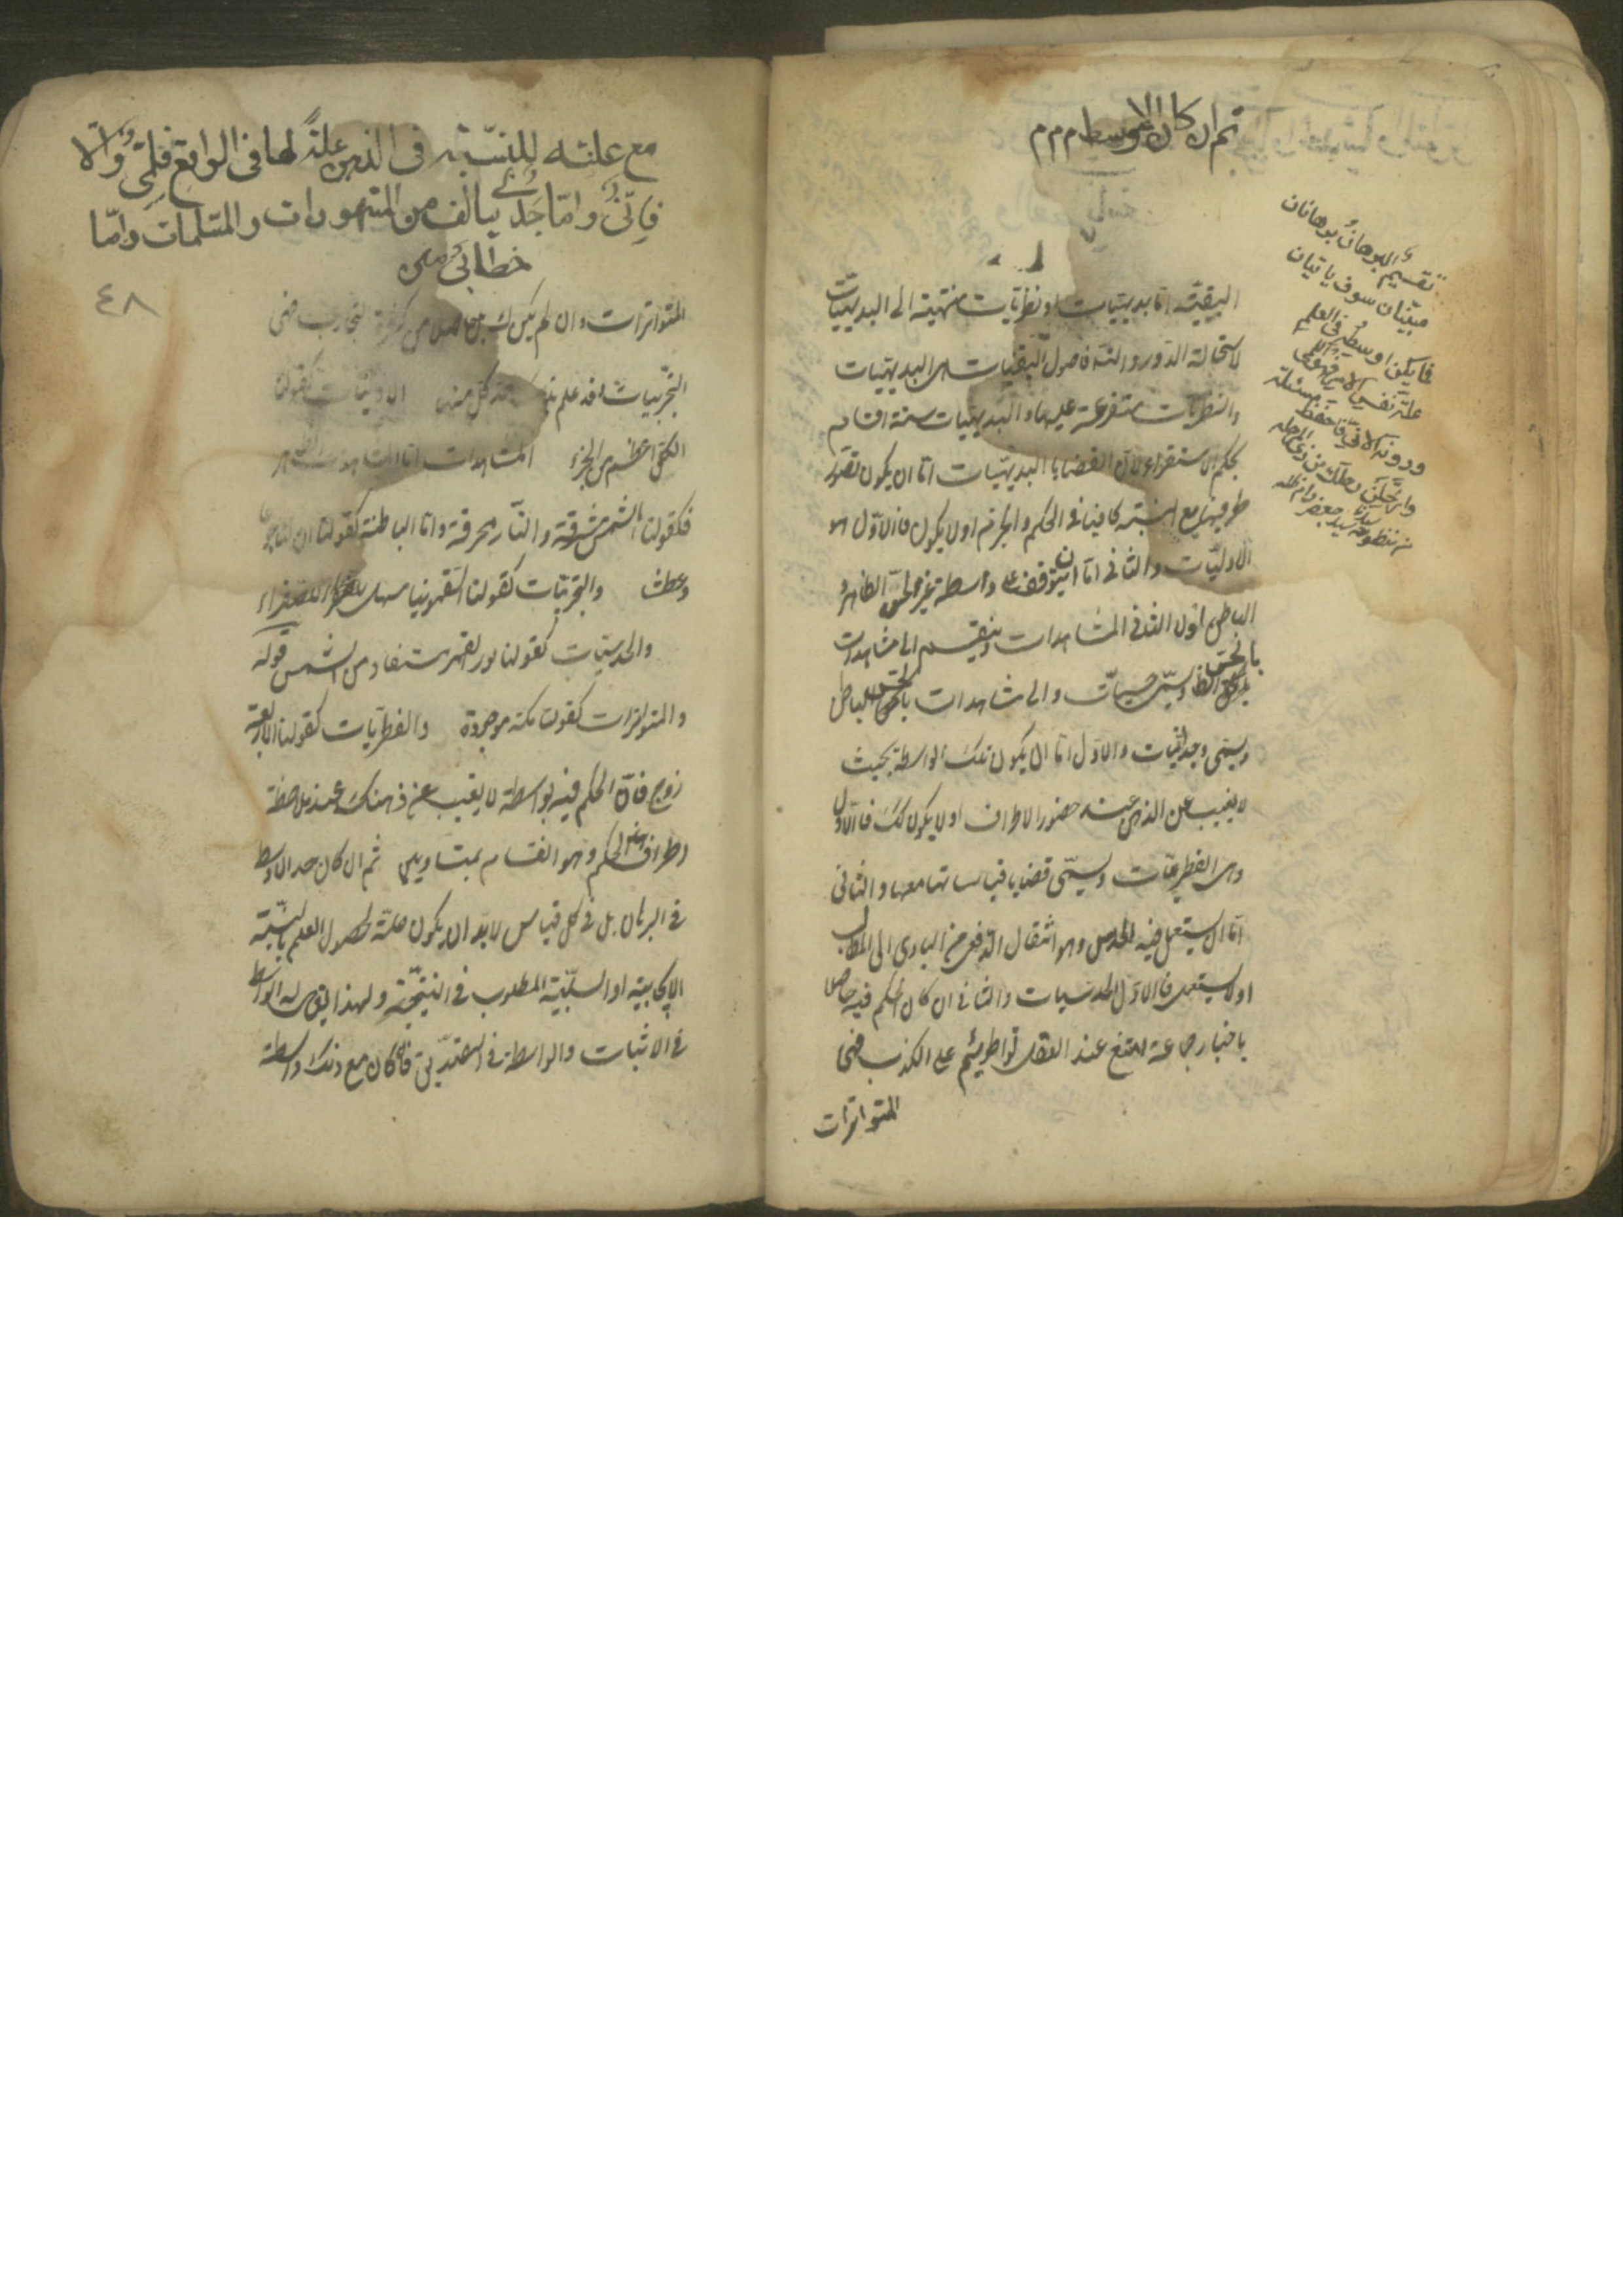 ثم ان كان الاوسط م م م
تقسيم البرهان برهانان
مبينان سوف ياتيان
فايكن اوسطه في العلم
علة نفس الامر فهو لمي
ودونه الاني فاحفظ مسئلة
من منظومة سيدنا سيد جعفر دام ظله
اليقينية اما بديهيات او نظريات منتهية الى البديهيات
لاستحالة الدور والتسلسل فاصول اليقينيات هى البديهيات
والنظريات متفرعة عليها والبديهيات ستة اقسام
بحكم الاستقراء لان القضايا البديهيات اما ان يكون تصور
طرفيها مع النسبة كافيا في الحكم والجزم او لا يكون فالاول هو
الاوليات والثاني اما ان يتوقف على واسطة غير الحس الظاهر
الباطن اولا الثاني المشاهدات وينقسم الى مشاهدات
بالحس الظاهر ويسمى حسيات والى مشاهدات بالحس الباطن
ويسمى وجدانيات والاول اما ان يكون تلك الواسطة بحيث
لا يغيب عن الذهن عند حضور الاطراف او لا يكون كك فالاول
هى الفطريات ويسمى قضايا قياساتها معها والثانى
اما ان يستعمل فيه الحدس وهو انتقال الدفعى من المبادى الى المطالب
او لا يستعمل فالاول الحدسيات والثانى ان كان الحكم فيه حاصلا
باخبار جماعة يمتنع عند العقل تواطؤهم على الكذب فهى
المتواترات
مع علته للنسبة في الذهن علة لها في الواقع فلمّيّ والّا
فانّيّ وامّا جدليّ يتالف من المشهورات والمسلمات وامّا
خطابيّ
٤٨
المتواترات وان لم يكن كك بل حاصلا من كثرة التجارب فهى
التجربيات وقد علم بذلك حد كل منها الاوليات كقولنا
الكل اعظم من الجزء المشاهدات اما المشاهدات الظاهر
فكقولنا الشمس مشرقة والنار محرقة واما الباطنة كقولنا ان لنا جوعا
وعطشا والتجربيات كقولنا السقمونيا مسهل للصفراء
والحدسيات كقولنا نور القمر مستفاد من الشمس قوله
والمتواترات كقولنا مكة موجودة والفطريات كقولنا الاربعة
زوج فان الحكم فيه بواسطة لا يغيب عن ذهنك عند ملاحظة
اطراف هذا الحكم وهو انقسام بمتساويين ثم ان كان حد الاوسط
في البرهان بل في كل قياس لابد ان يكون علة لحصول العلم بالنسبة
الايجابية او السلبية المطلوب في النتيجة ولهذا يقال له الواسطة
في الاثبات والواسطة في التصديق فان كان مع ذلك واسطة